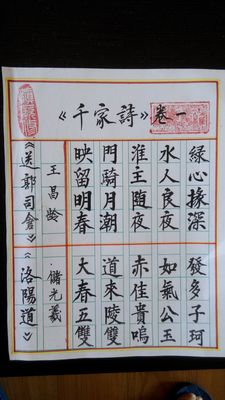 《千家詩》卷一
綠心掾深
水人良夜
淮主随夜
門騎月潮
映留明春
王昌齡
《送郭司倉》
發多子珂
如氣公玉
佳貴鳴
道來陵雙
大春五雙
儲光羲
《洛陽道》